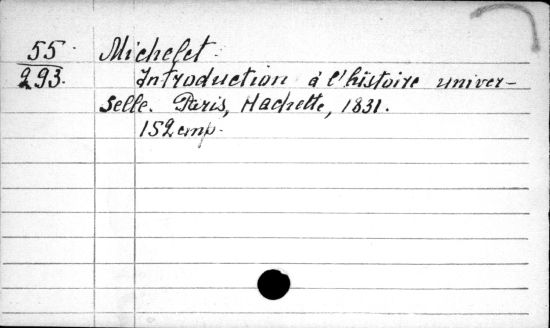 55 Michelet
293. Introduction à l'histoire univer-
selle. Paris, Hachette, 1831.
152 стр.